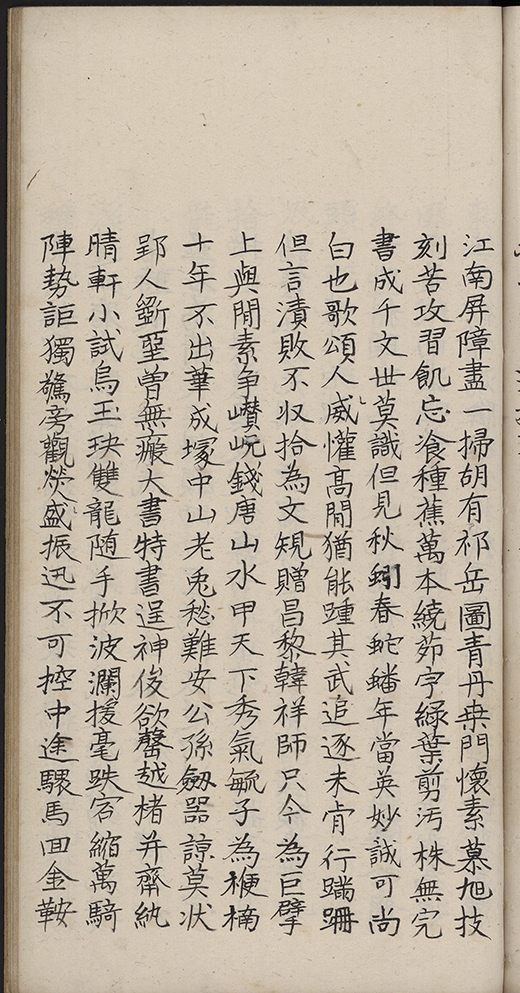 江南屏障盡一掃胡有祁岳圖青丹桒門懷素慕旭技
刻苦攻習飢忘飡種蕉萬本繞茆宇緑葉剪污株無完
書成千文世莫識但見秋蚓春蛇蟠年當英妙誠可尚
白也歌頌人威懽髙閒猶能踵其武追逐未肯行蹣跚
但言漬敗不収拾為文規贈昌黎韓祥師只今為巨擘
上與閒素争巑岏錢唐山水甲天下秀氣毓子為楩楠
十年不出華成塚中山老兎愁難安公孫劔器諒莫状
郢人斵堊曽無瘢大書特書逞神俊欲罄越楮并齊紈
晴軒小試烏玉玦雙龍随手掀波瀾援毫跌宕縮萬騎
陣勢詎獨驚旁觀盛振迅不可控中途驟馬回金鞍